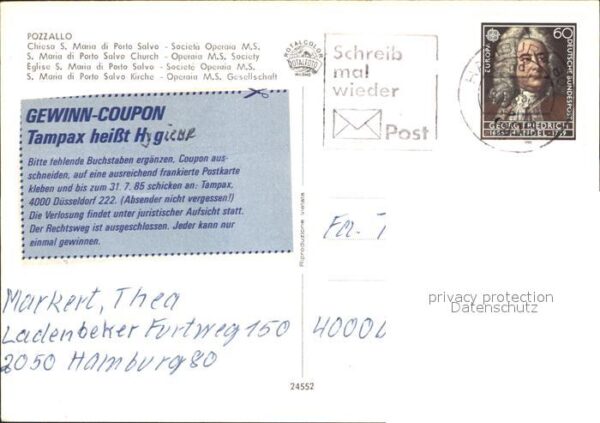 POZZALLO
Chiesa S. Maria di Porto Salvo - Società Operaia M.S.
S. Maria di Porto Salvo Church - Operaia M.S. Society
Eglise S. Maria di Porto Salvo - Société Operaia M.S.
S. Maria di Porto Salvo Kirche - Operaia M.S. Gesellschaft
ROTALCOLOR
ROTALFOTO
MILANO
Schreib
mal
wieder
Post
60
EUROPA
DEUTSCHE BUNDESPOST
GEORG FRIEDRICH
1685 HÄNDEL 1759
GEWINN-COUPON
Tampax heißt Hygiene
Bitte fehlende Buchstaben ergänzen, Coupon aus-
schneiden, auf eine ausreichend frankierte Postkarte
kleben und bis zum 31. 7. 85 schicken an: Tampax,
4000 Düsseldorf 222. (Absender nicht vergessen!)
Die Verlosung findet unter juristischer Aufsicht statt.
Der Rechtsweg ist ausgeschlossen. Jeder kann nur
einmal gewinnen.
Riproduzione Vietata
Fa. T
privacy protection
Datenschutz
Markert, Thea
Ladenbeker Furtweg 150
2050 Hamburg 80
4000
24552